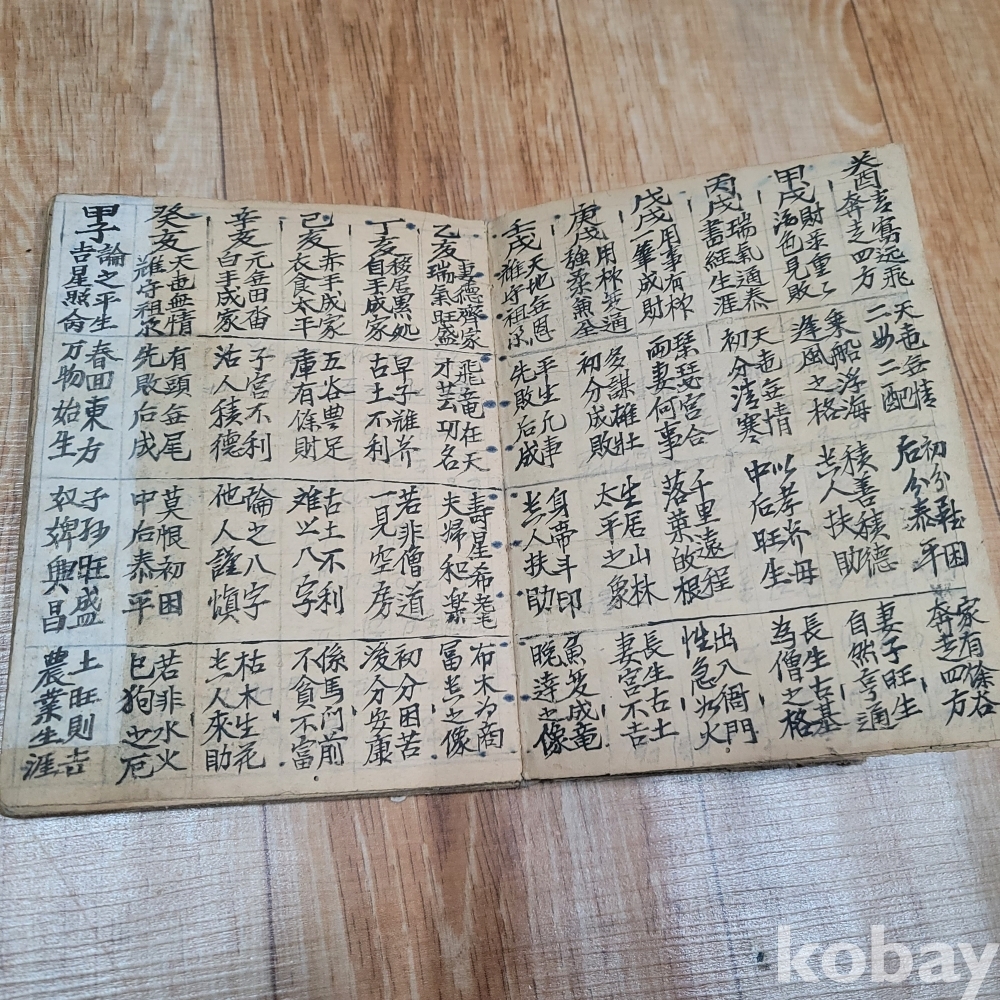 癸酉
奔走四方
二女二配
初分難困
后分泰平
家有餘谷
奔走四方
甲戌
財柔重重
酒色見敗
乘船浮海
逢風之格
積善積德
貴人扶助
妻子旺生
自然亨通
丙戌
瑞氣通泰
書經生涯
天地無情
初分清寒
以孝养母
中后旺生
長生古基
為僧之格
戊戌
用事有权
一筆成財
琴瑟宮合
兩妻何事
千里遠程
落葉故根
出入衙門
性急如火
庚戌
用权災通
強柔兼全
多謀雄壯
初分成敗
生居山林
太平之象
長生古土
妻宮不吉
壬戌
天地無恩
难守祖宗
平生元事
先敗后成
身帶斗印
貴人扶助
魚変成竜
晚達之像
乙亥
齊家
瑞氣旺盛
飛竜在天
才芸功名
壽星希耄
夫婦和楽
布木为商
富貴之像
丁亥
移居黑処
自手成家
早子難养
古土不利
若非僧道
一見空房
初分困苦
浚分安康
己亥
赤手成家
衣食太平
五谷豊足
庫有餘財
古土不利
难以八字
係馬门前
不貧不富
辛亥
元無田畓
白手成家
子宮不利
活人積德
論之八字
他人謹慎
枯木生花
貴人來助
癸亥
天地無情
難守祖定
有頭無尾
先敗后成
莫恨初困
中后泰平
若非水火
巳狗之厄
甲子
論之平生
吉星照命
春回東方
万物始生
子孙旺盛
奴婢興昌
土旺則吉
農業生涯
kobay